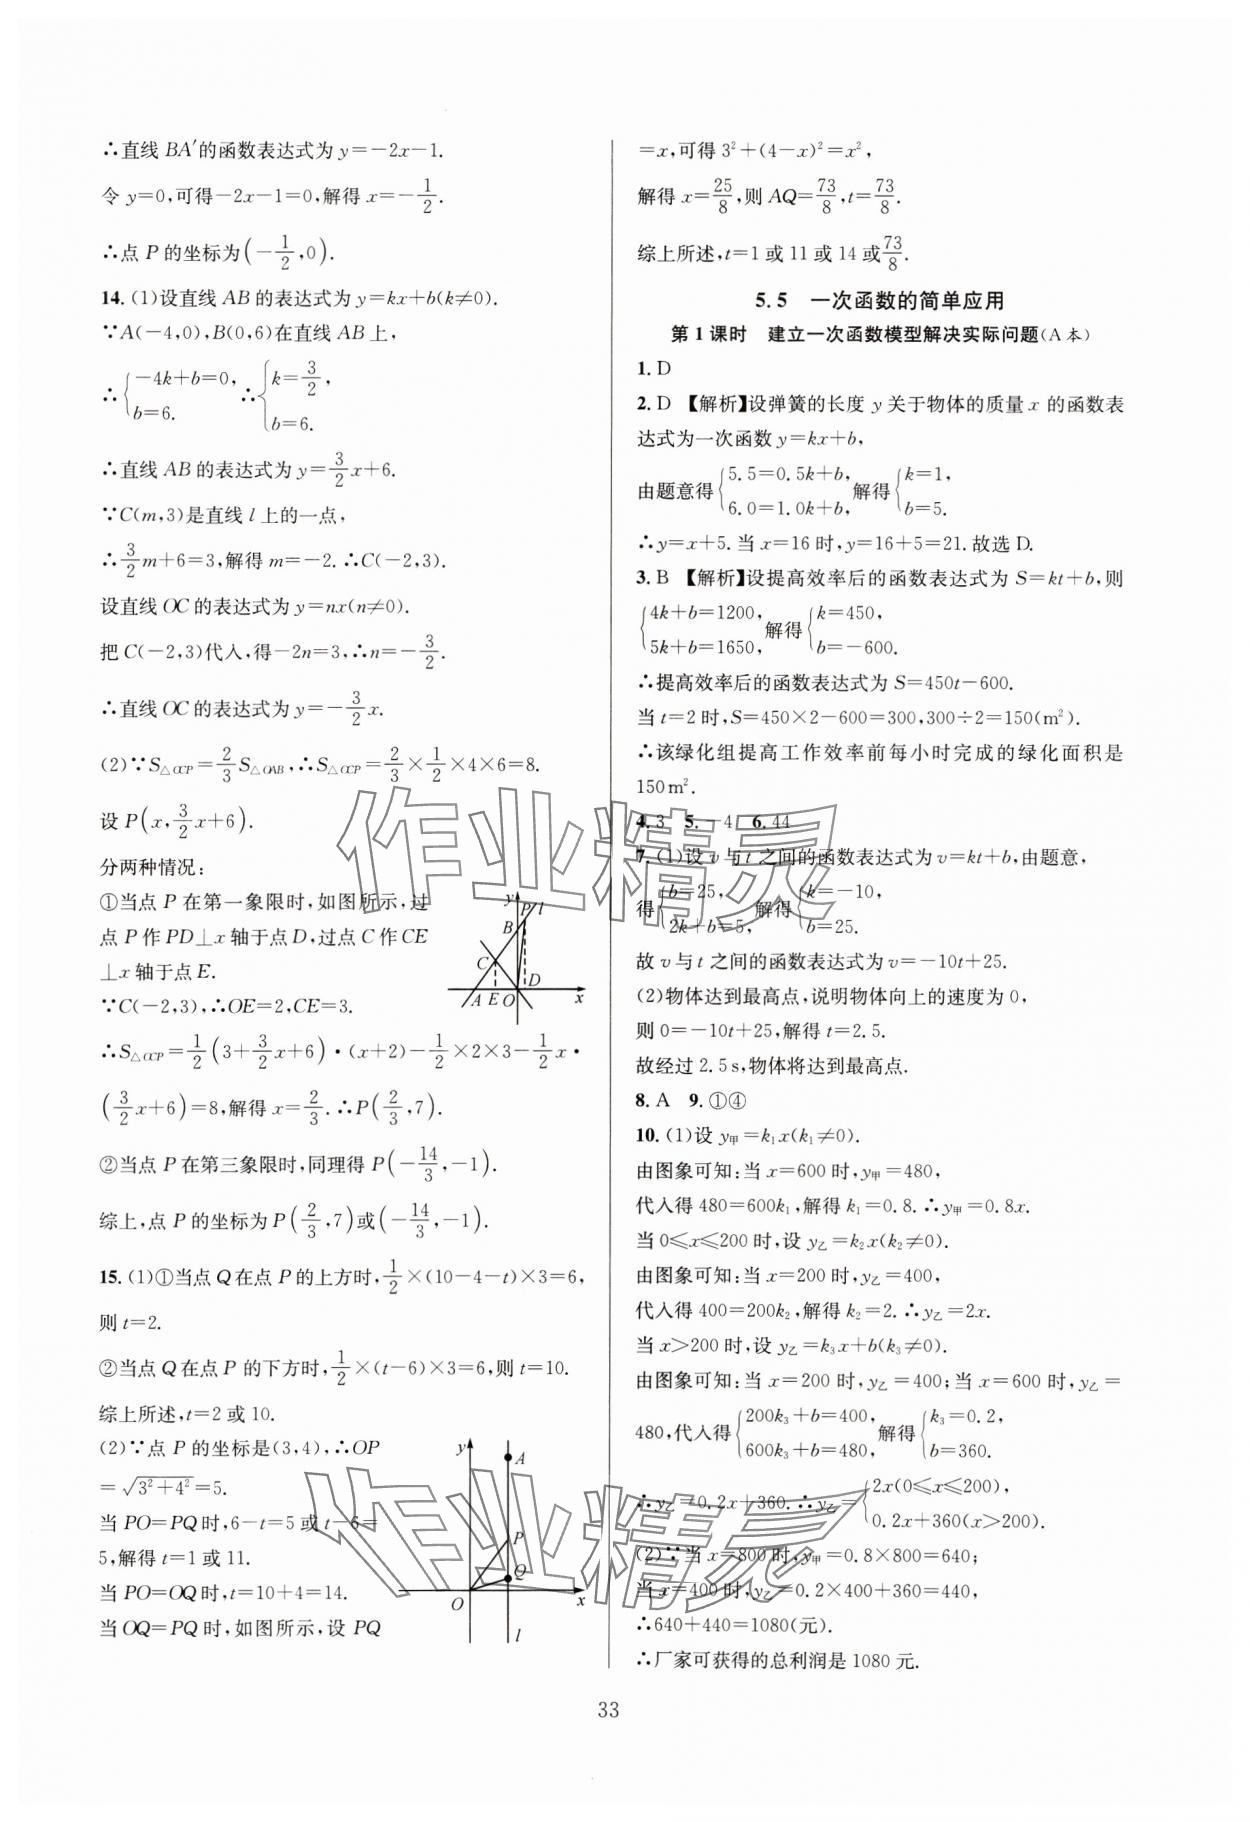 ∴直线 BA′的函数表达式为 y=−2x−1.
令 y=0,可得−2x−1=0,解得 x=−1/2.
∴点 P 的坐标为(−1/2,0).
14. (1)设直线 AB 的表达式为 y=kx+b(k≠0).
∵A(−4,0),B(0,6)在直线 AB 上,
∴{−4k+b=0, b=6. ∴{k=3/2, b=6.
∴直线 AB 的表达式为 y=3/2x+6.
∵C(m,3)是直线 l 上的一点,
∴3/2m+6=3,解得 m=−2. ∴C(−2,3).
设直线 OC 的表达式为 y=nx(n≠0).
把 C(−2,3)代入,得−2n=3,∴n=−3/2.
∴直线 OC 的表达式为 y=−3/2x.
(2)∵S△OCP=2/3S△OAB,∴S△OCP=2/3×1/2×4×6=8.
设 P(x,3/2x+6).
分两种情况:
①当点 P 在第一象限时,如图所示,过
点 P 作 PD⊥x 轴于点 D,过点 C 作 CE
⊥x 轴于点 E.
∵C(−2,3),∴OE=2,CE=3.
y P l
B
C
D
A E O x
∴S△OCP=1/2(3+3/2x+6)·(x+2)−1/2×2×3−1/2x·
(3/2x+6)=8,解得 x=2/3. ∴P(2/3,7).
②当点 P 在第三象限时,同理得 P(−14/3,−1).
综上,点 P 的坐标为 P(2/3,7)或(−14/3,−1).
15. (1)①当点 Q 在点 P 的上方时,1/2×(10−4−t)×3=6,
则 t=2.
②当点 Q 在点 P 的下方时,1/2×(t−6)×3=6,则 t=10.
综上所述,t=2 或 10.
(2)∵点 P 的坐标是(3,4),∴OP
=√(3²+4²)=5.
当 PO=PQ 时,6−t=5 或 t−6=
5,解得 t=1 或 11.
当 PO=OQ 时,t=10+4=14.
当 OQ=PQ 时,如图所示,设 PQ
y
A
P
Q
O x
l
=x,可得 3²+(4−x)²=x²,
解得 x=25/8,则 AQ=73/8,t=73/8.
综上所述,t=1 或 11 或 14 或73/8.
5.5 一次函数的简单应用
第 1 课时 建立一次函数模型解决实际问题(A 本)
1. D
2. D 【解析】设弹簧的长度 y 关于物体的质量 x 的函数表
达式为一次函数 y=kx+b,
由题意得{5.5=0.5k+b, 6.0=1.0k+b, 解得{k=1, b=5.
∴y=x+5. 当 x=16 时,y=16+5=21. 故选 D.
3. B 【解析】设提高效率后的函数表达式为 S=kt+b,则
{4k+b=1200, 5k+b=1650, 解得{k=450, b=−600.
∴提高效率后的函数表达式为 S=450t−600.
当 t=2 时,S=450×2−600=300,300÷2=150(m²).
∴该绿化组提高工作效率前每小时完成的绿化面积是
150 m².
4. 3 5. −4 6. 44
7. (1)设 v 与 t 之间的函数表达式为 v=kt+b,由题意,
得{b=25, 2k+b=5, 解得{k=−10, b=25.
故 v 与 t 之间的函数表达式为 v=−10t+25.
(2)物体达到最高点,说明物体向上的速度为 0,
则 0=−10t+25,解得 t=2.5.
故经过 2.5 s,物体将达到最高点.
8. A 9. ①④
10. (1)设 y甲=k₁x(k₁≠0).
由图象可知:当 x=600 时,y甲=480,
代入得 480=600k₁,解得 k₁=0.8. ∴y甲=0.8x.
当 0≤x≤200 时,设 y乙=k₂x(k₂≠0).
由图象可知:当 x=200 时,y乙=400,
代入得 400=200k₂,解得 k₂=2. ∴y乙=2x.
当 x>200 时,设 y乙=k₃x+b(k₃≠0).
由图象可知:当 x=200 时,y乙=400;当 x=600 时,y乙=
480,代入得{200k₃+b=400, 600k₃+b=480, 解得{k₃=0.2, b=360.
∴y乙=0.2x+360. ∴y乙={2x(0≤x≤200), 0.2x+360(x>200).
(2)∵当 x=800 时,y甲=0.8×800=640;
当 x=400 时,y乙=0.2×400+360=440,
∴640+440=1080(元).
∴厂家可获得的总利润是 1080 元.
作业精灵
作业精灵
33